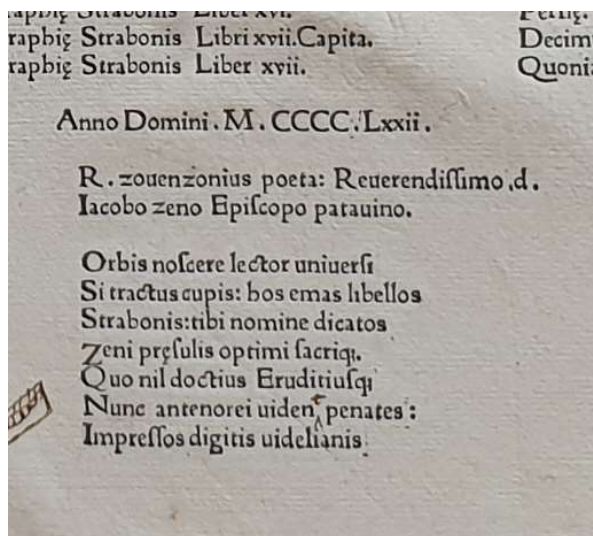 raphię Strabonis Liber xvi.
raphię Strabonis Libri xvii.Capita.
raphię Strabonis Liber xvii.
Pernię.
Decim
Quonia
Anno Domini . M . CCCC . Lxxii .
R . zouenzonius poeta: Reuerendiſſimo .d.
Iacobo zeno Epiſcopo patauino.
Orbis noſcere lector uniuerſi
Si tractus cupis: hos emas libellos
Strabonis: tibi nomine dicatos
Zeni pręſulis optimi ſacriqꝫ.
Quo nil doctius Eruditiuſqꝫ
Nunc antenorei uident penates :
Impreſſos digitis uidelianis